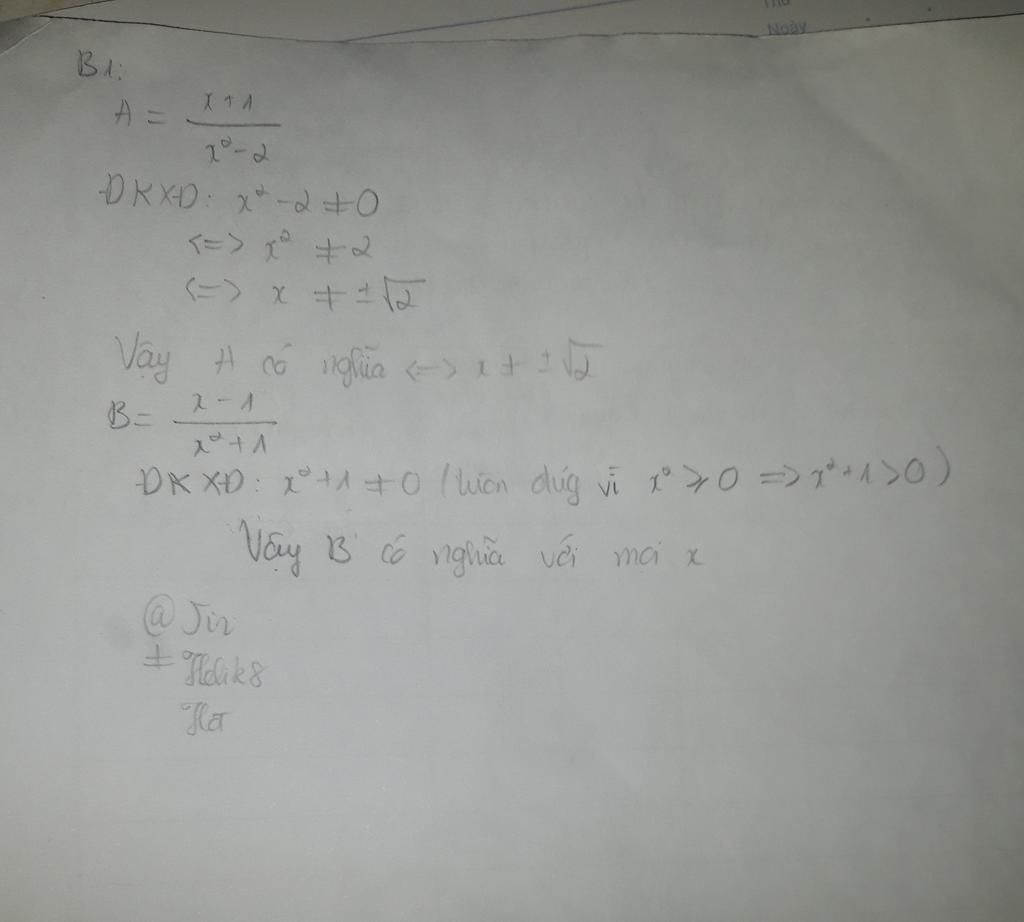 Thứ
Ngày
B1:
A = x+1 / x²-2
ĐKXĐ: x²-2≠0
<=> x² ≠2
<=> x ≠ ±√2
Vậy A có nghĩa <=> x ≠ ±√2
B= x-1 / x²+1
ĐKXĐ: x²+1≠0 (luôn đúg vì x²≥0 =>x²+1>0)
Vậy B có nghĩa với mọi x
@ Jin